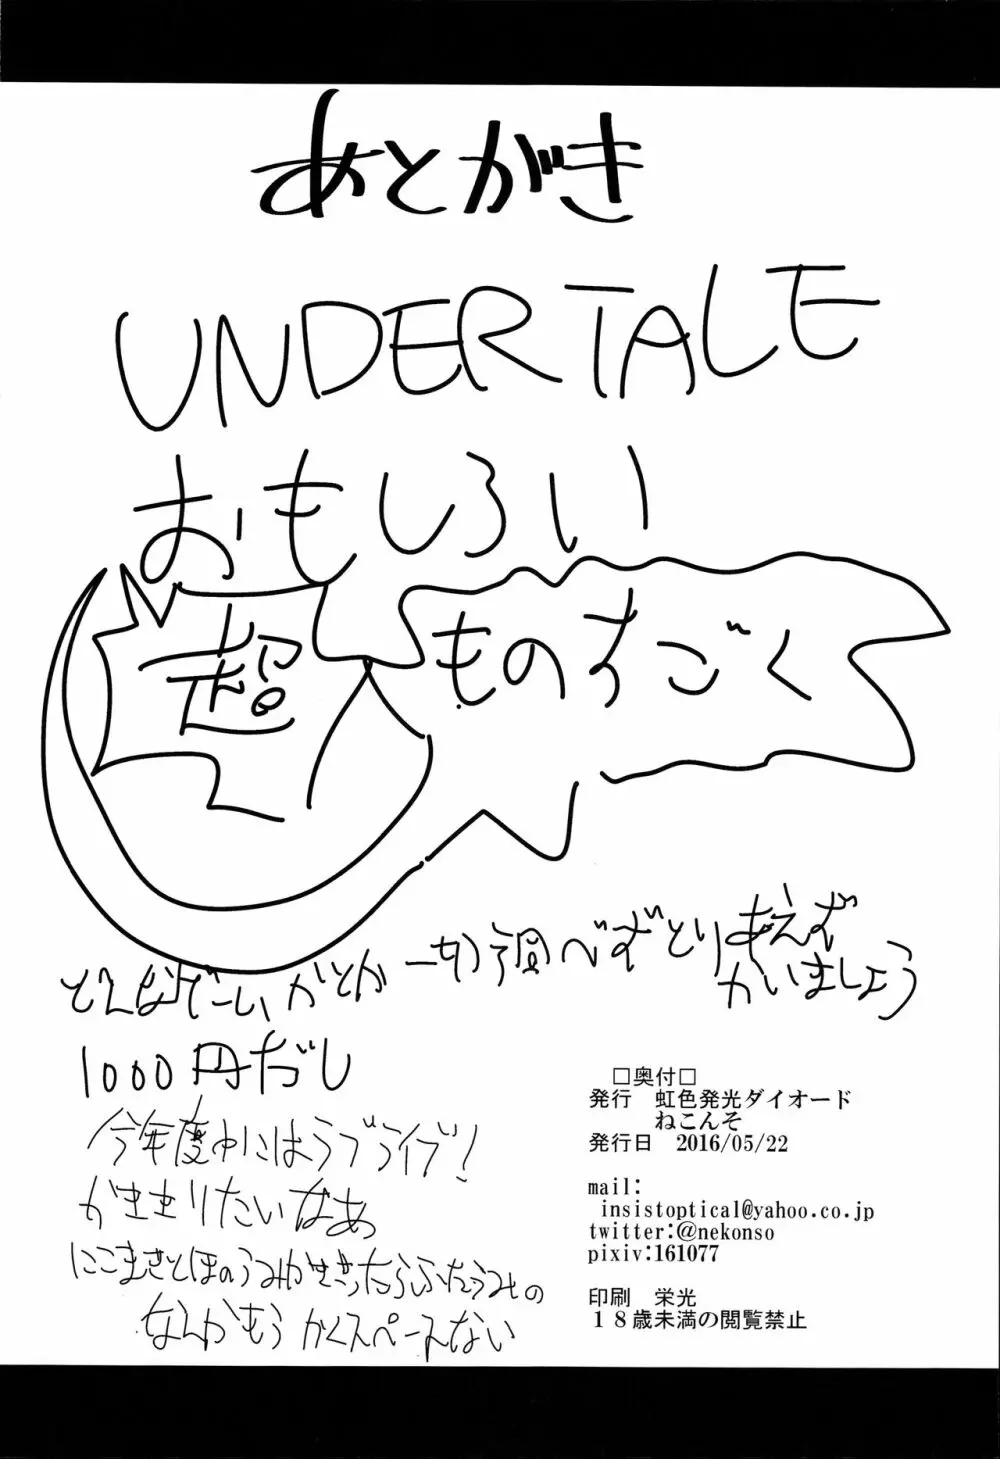 あとがき
UNDERTALE
おもしろい
超 ものすごく
どんなゲームかとか一切調べずとりあえず
かいましょう
1000円だし
今年度中にはラブライブ!
かききりたいなあ
にこまきとほのうみかききったらふたうみの
なんかもうかくスペースない
□奥付□
発行 虹色発光ダイオード
ねこんそ
発行日 2016/05/22
mail:
insistoptical@yahoo.co.jp
twitter:@nekonso
pixiv:161077
印刷 栄光
18歳未満の閲覧禁止